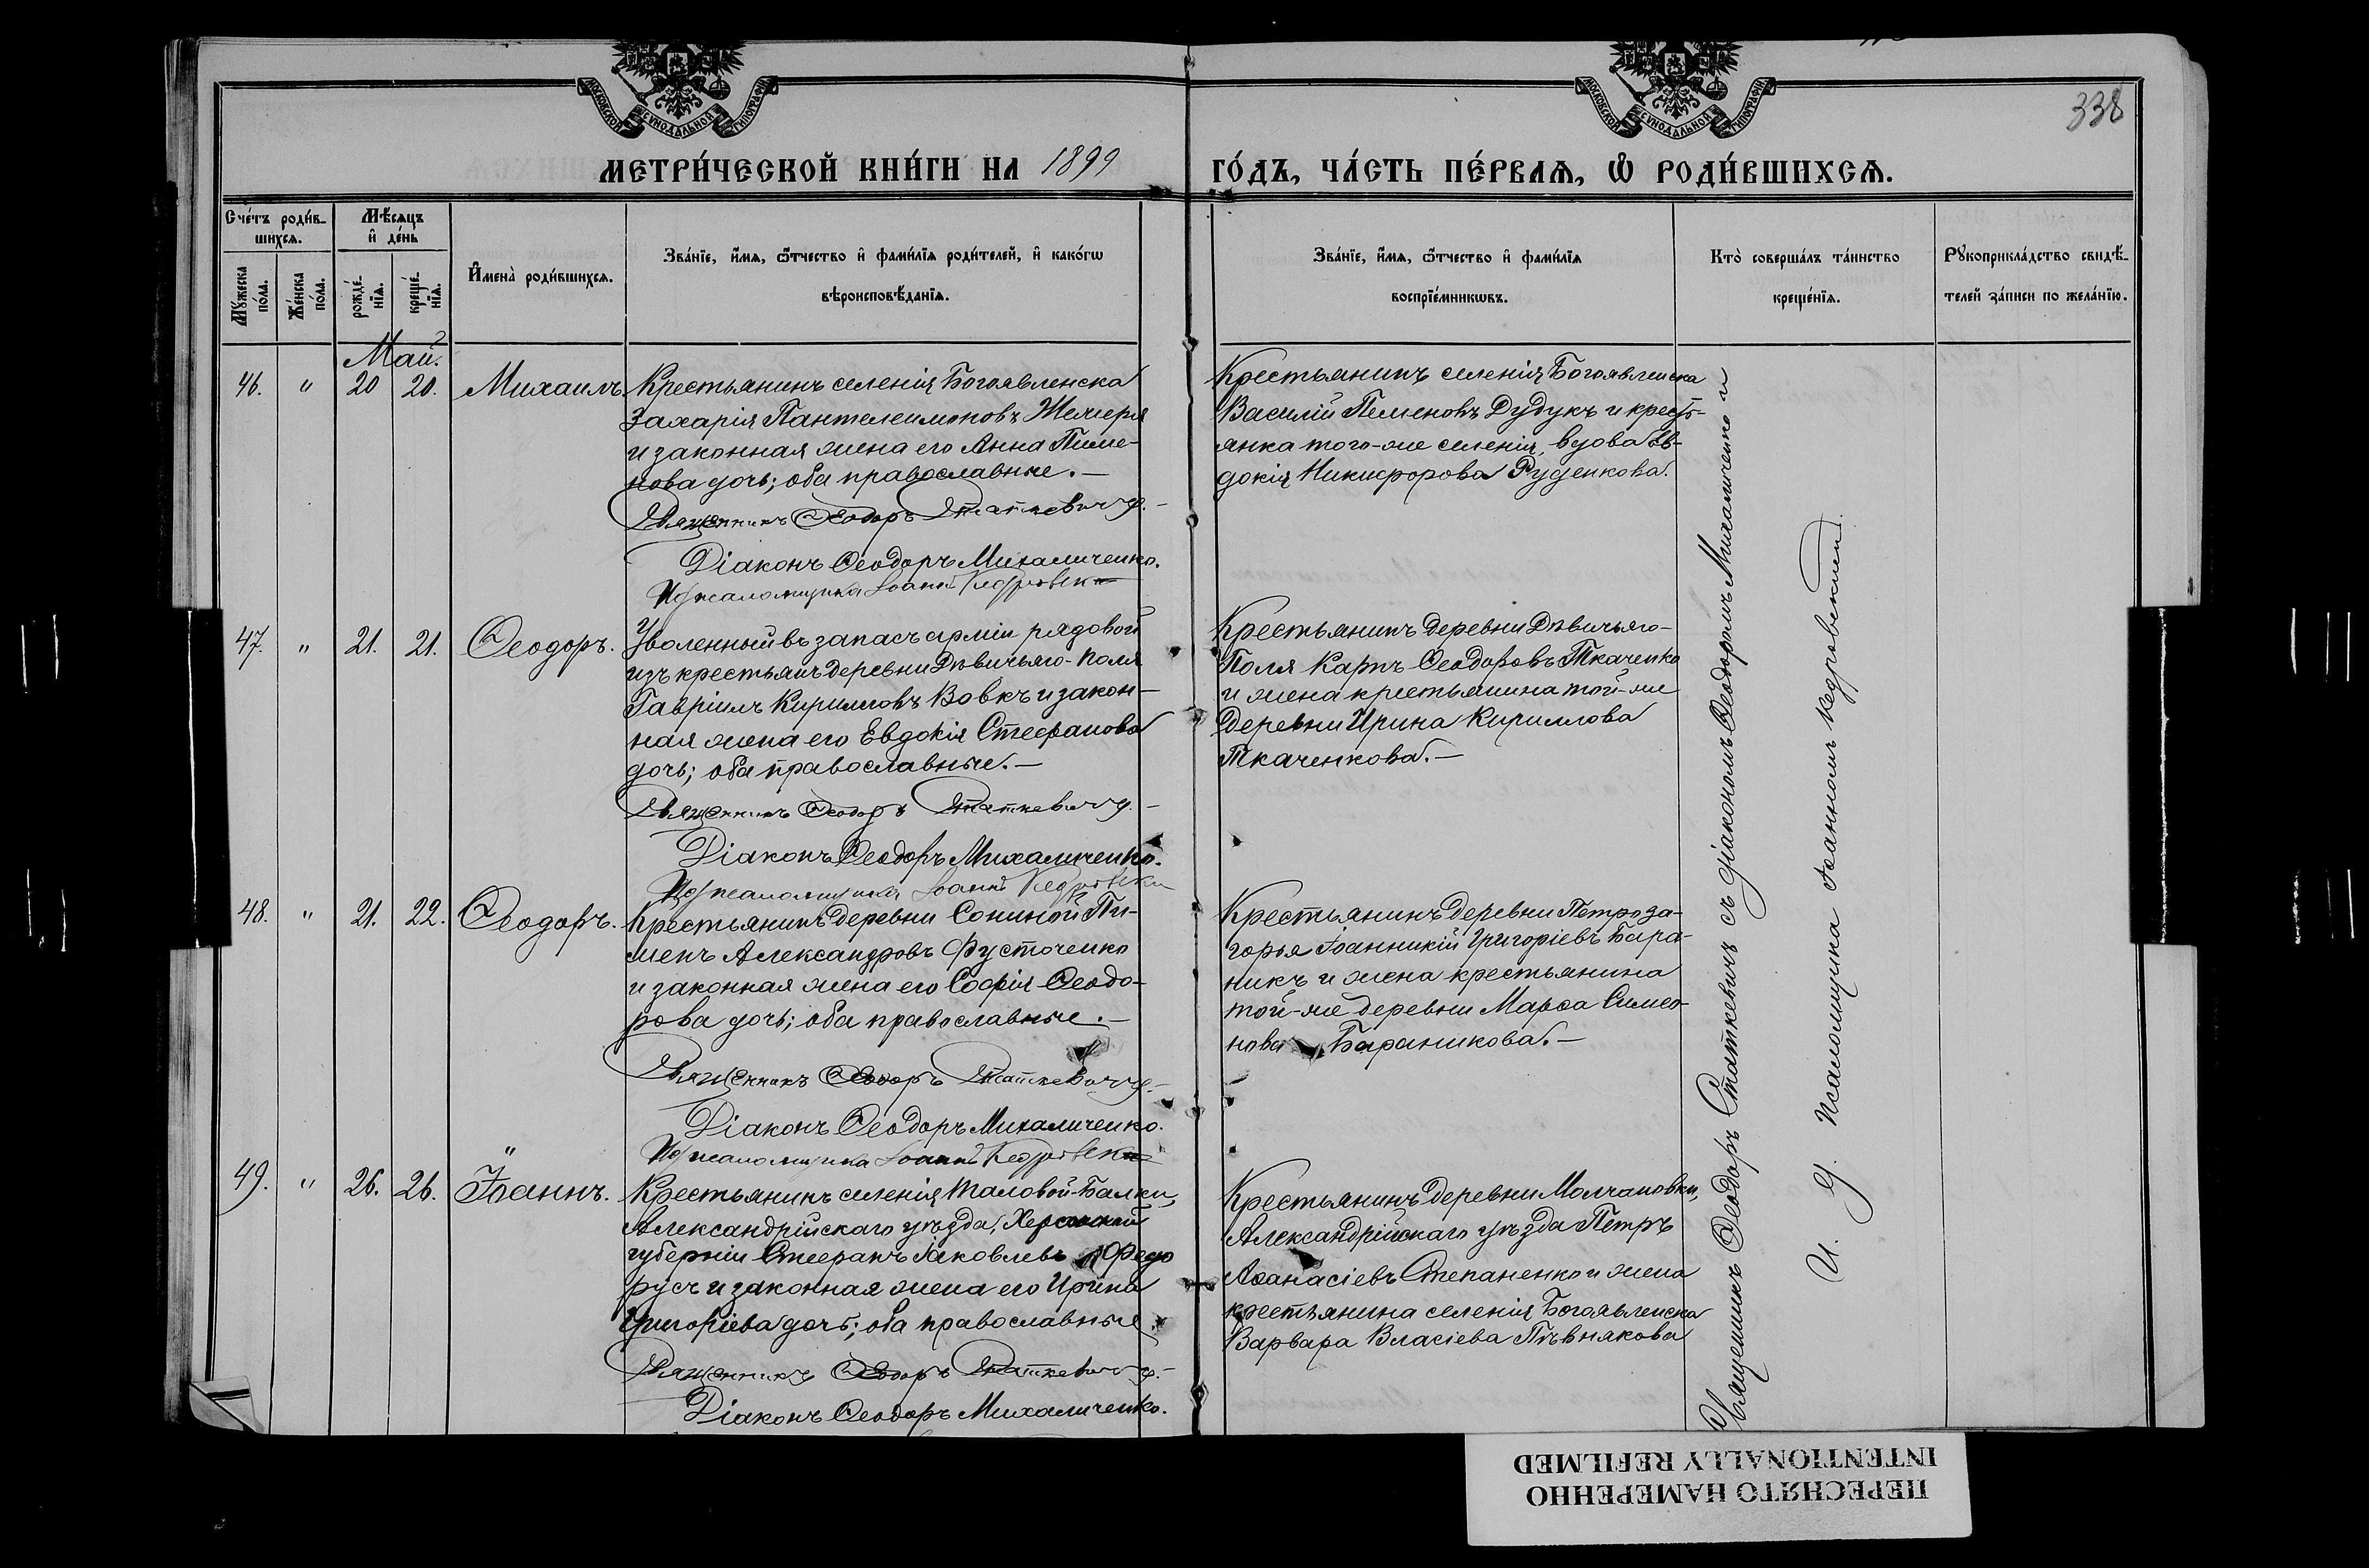 МОСКОВСКОЙ СѴНОДАЛЬНОЙ ТИПОГРАФІИ
МОСКОВСКОЙ СѴНОДАЛЬНОЙ ТИПОГРАФІИ
338
МЕТРИ́ЧЕСКОЙ КНИ́ГИ НА 1899
ГО́ДЪ, ЧА́СТЬ ПЕ́РВАѦ, Ѡ РОДИ́ВШИХСѦ.
Сче́тъ роди́в-
шихсѧ.
Мꙋ́жеска по́ла.
Же́нска по́ла.
Мѣ́сѧцъ
и҆ де́нь
рожде́-
нїѧ.
креще́-
нїѧ.
И҆мена̀ роди́вшихсѧ.
Зва́нїе, и҆́мѧ, ѻ҆́тчество и҆ фами́лїѧ роди́телей, и҆ како́гѡ
вѣроисповѣ́данїѧ.
Зва́нїе, и҆́мѧ, ѻ҆́тчество и҆ фами́лїѧ
воспрїе́мникѡвъ.
Кто̀ соверша́лъ та́инство
креще́нїѧ.
Рꙋкоприкла́дство свидѣ́-
телей за́писи по жела́нїю.
Май.
46. " 20 20. Михаилъ
Крестьянинъ селенія Богоявленска
Захарія Пантелеимоновъ Жемеря
и законная жена его Анна Пиме-
нова дочь; оба православные.—
Священникъ Ѳеодоръ Статкевичъ.—
Діаконъ Ѳеодоръ Михаличенко.
И д псаломщика Іоаннъ Кедровскій
Крестьянинъ селенія Богоявленска
Василій Пименовъ Дудукъ и кресть-
янка того-же селенія, вдова Ев-
докія Никифорова Руденкова.
47. " 21. 21. Ѳеодоръ.
Уволенный въ запасъ арміи рядовой
изъ крестьянъ деревни Дѣвичьяго-Поля
Гавріилъ Кирилловъ Вовкъ и закон-
ная жена его Евдокія Стефанова
дочь; оба православные.—
Священникъ Ѳеодоръ Статкевичъ.—
Діаконъ Ѳеодоръ Михаличенко.
И д псаломщика Іоаннъ Кедровскій
Крестьянинъ деревни Дѣвичьяго-
Поля Карпъ Ѳеодоровъ Ткаченко
и жена крестьянина той-же
деревни Ирина Кириллова
Ткаченкова.—
48. " 21. 22. Ѳеодоръ.
Крестьянинъ деревни Сониной Пи-
менъ Александровъ Фусточенко
и законная жена его Софія Ѳеодо-
рова дочь; оба православные.—
Священникъ Ѳеодоръ Статкевичъ.—
Діаконъ Ѳеодоръ Михаличенко.
И д псаломщика Іоаннъ Кедровскій
Крестьянинъ деревни Петроза-
горья Іоанникій Григоріевъ Бара-
никъ и жена крестьянина
той-же деревни Марѳа Симео-
нова Бараникова.—
49. " 26. 26. Іоаннъ.
Крестьянинъ селенія Таловой-Балки,
Александрійскаго уѣзда, Херсонской
губерніи Стефанъ Іаковлевъ Федо
русъ и законная жена его Ирина
Григоріева дочь; оба православные.
Священникъ Ѳеодоръ Статкевичъ.—
Діаконъ Ѳеодоръ Михаличенко.
Крестьянинъ деревни Молчановки,
Александрійскаго уѣзда Петръ
Аѳанасіевъ Степаненко и жена
крестьянина селенія Богоявленска
Варвара Власіева Пѣвнякова
Священникъ Ѳеодоръ Статкевичъ съ діакономъ Ѳеодоромъ Михаличенко и
И. д. псаломщика Іоанномъ Кедровскимъ.
ПЕРЕСНЯТО НАМЕРЕННО
INTENTIONALLY REFILMED